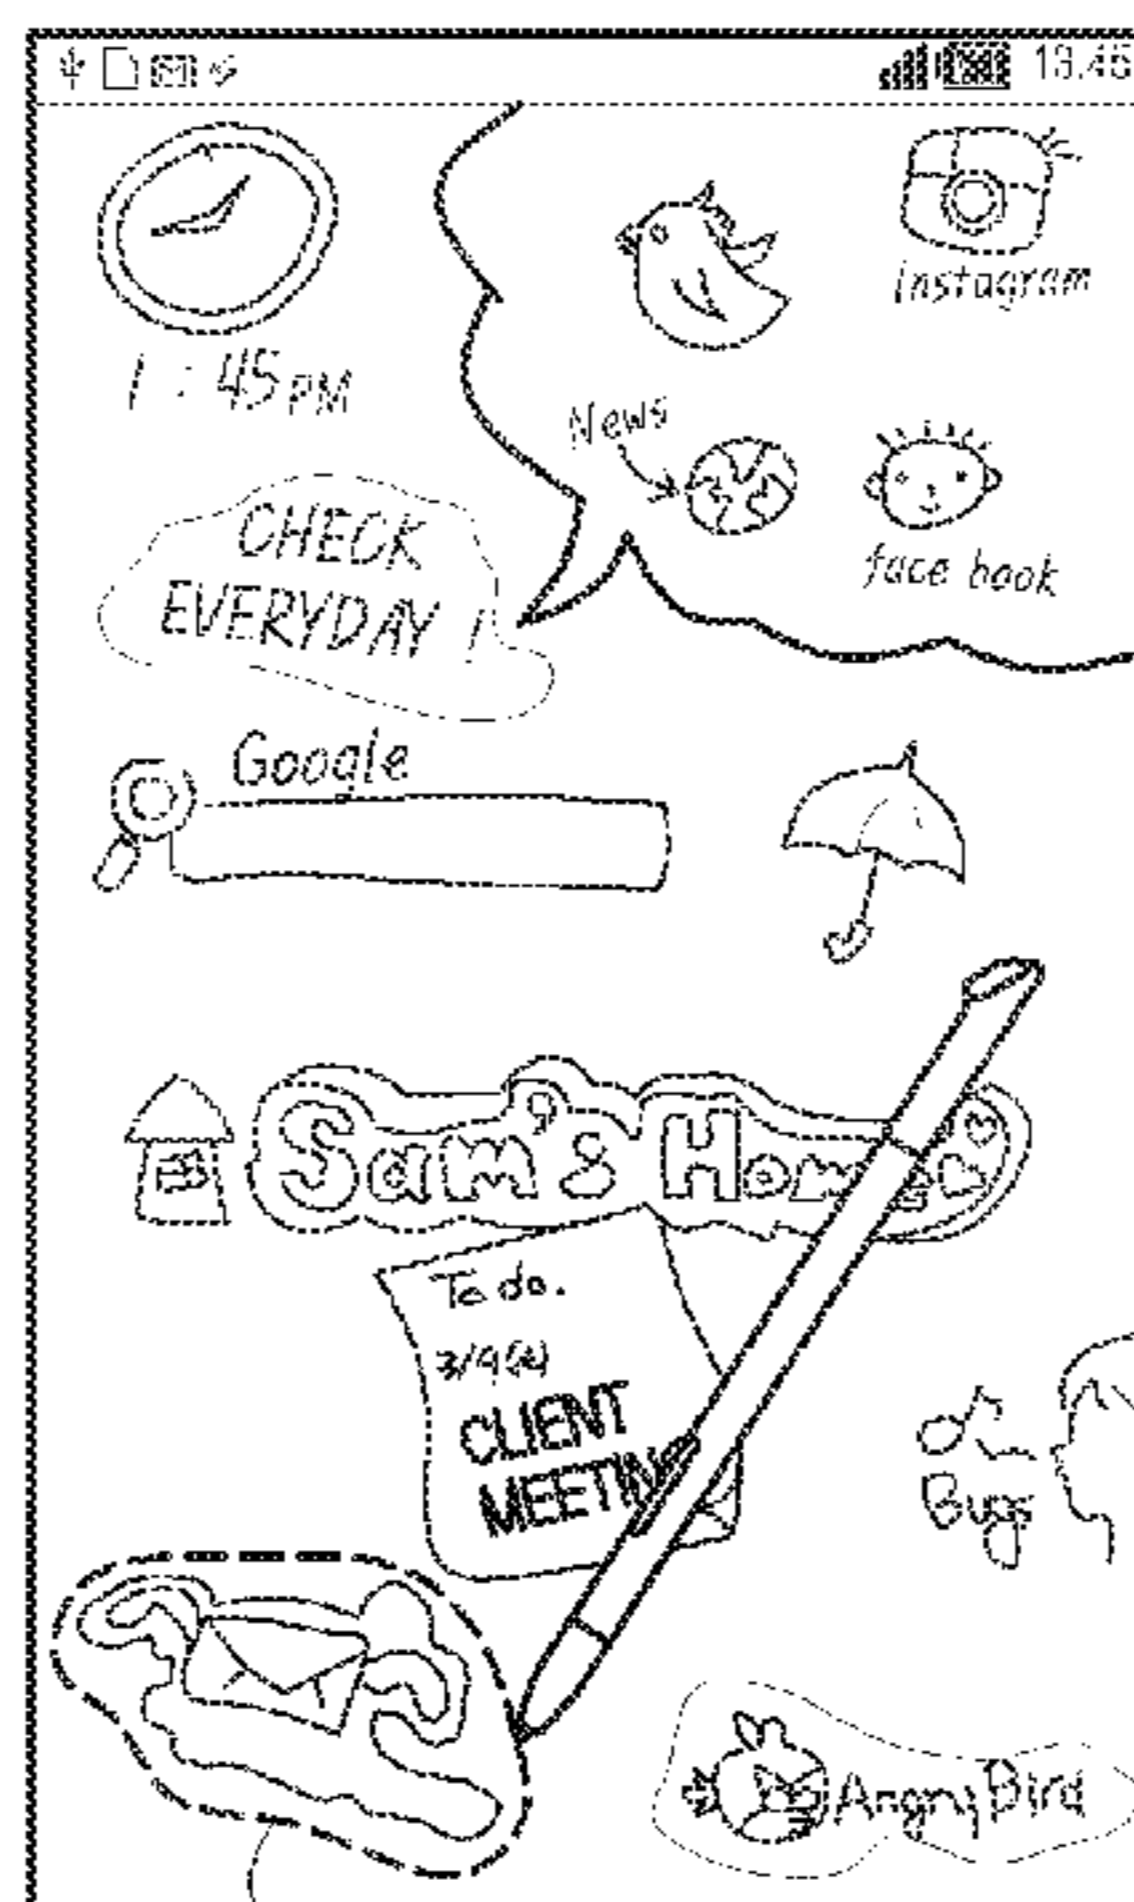 13:45
Instagram
1 : 45 PM
News
face book
CHECK
EVERYDAY !
Google
Sam's Home
To do.
3/9
CLIENT
MEETING
Bugs
Angry Bird